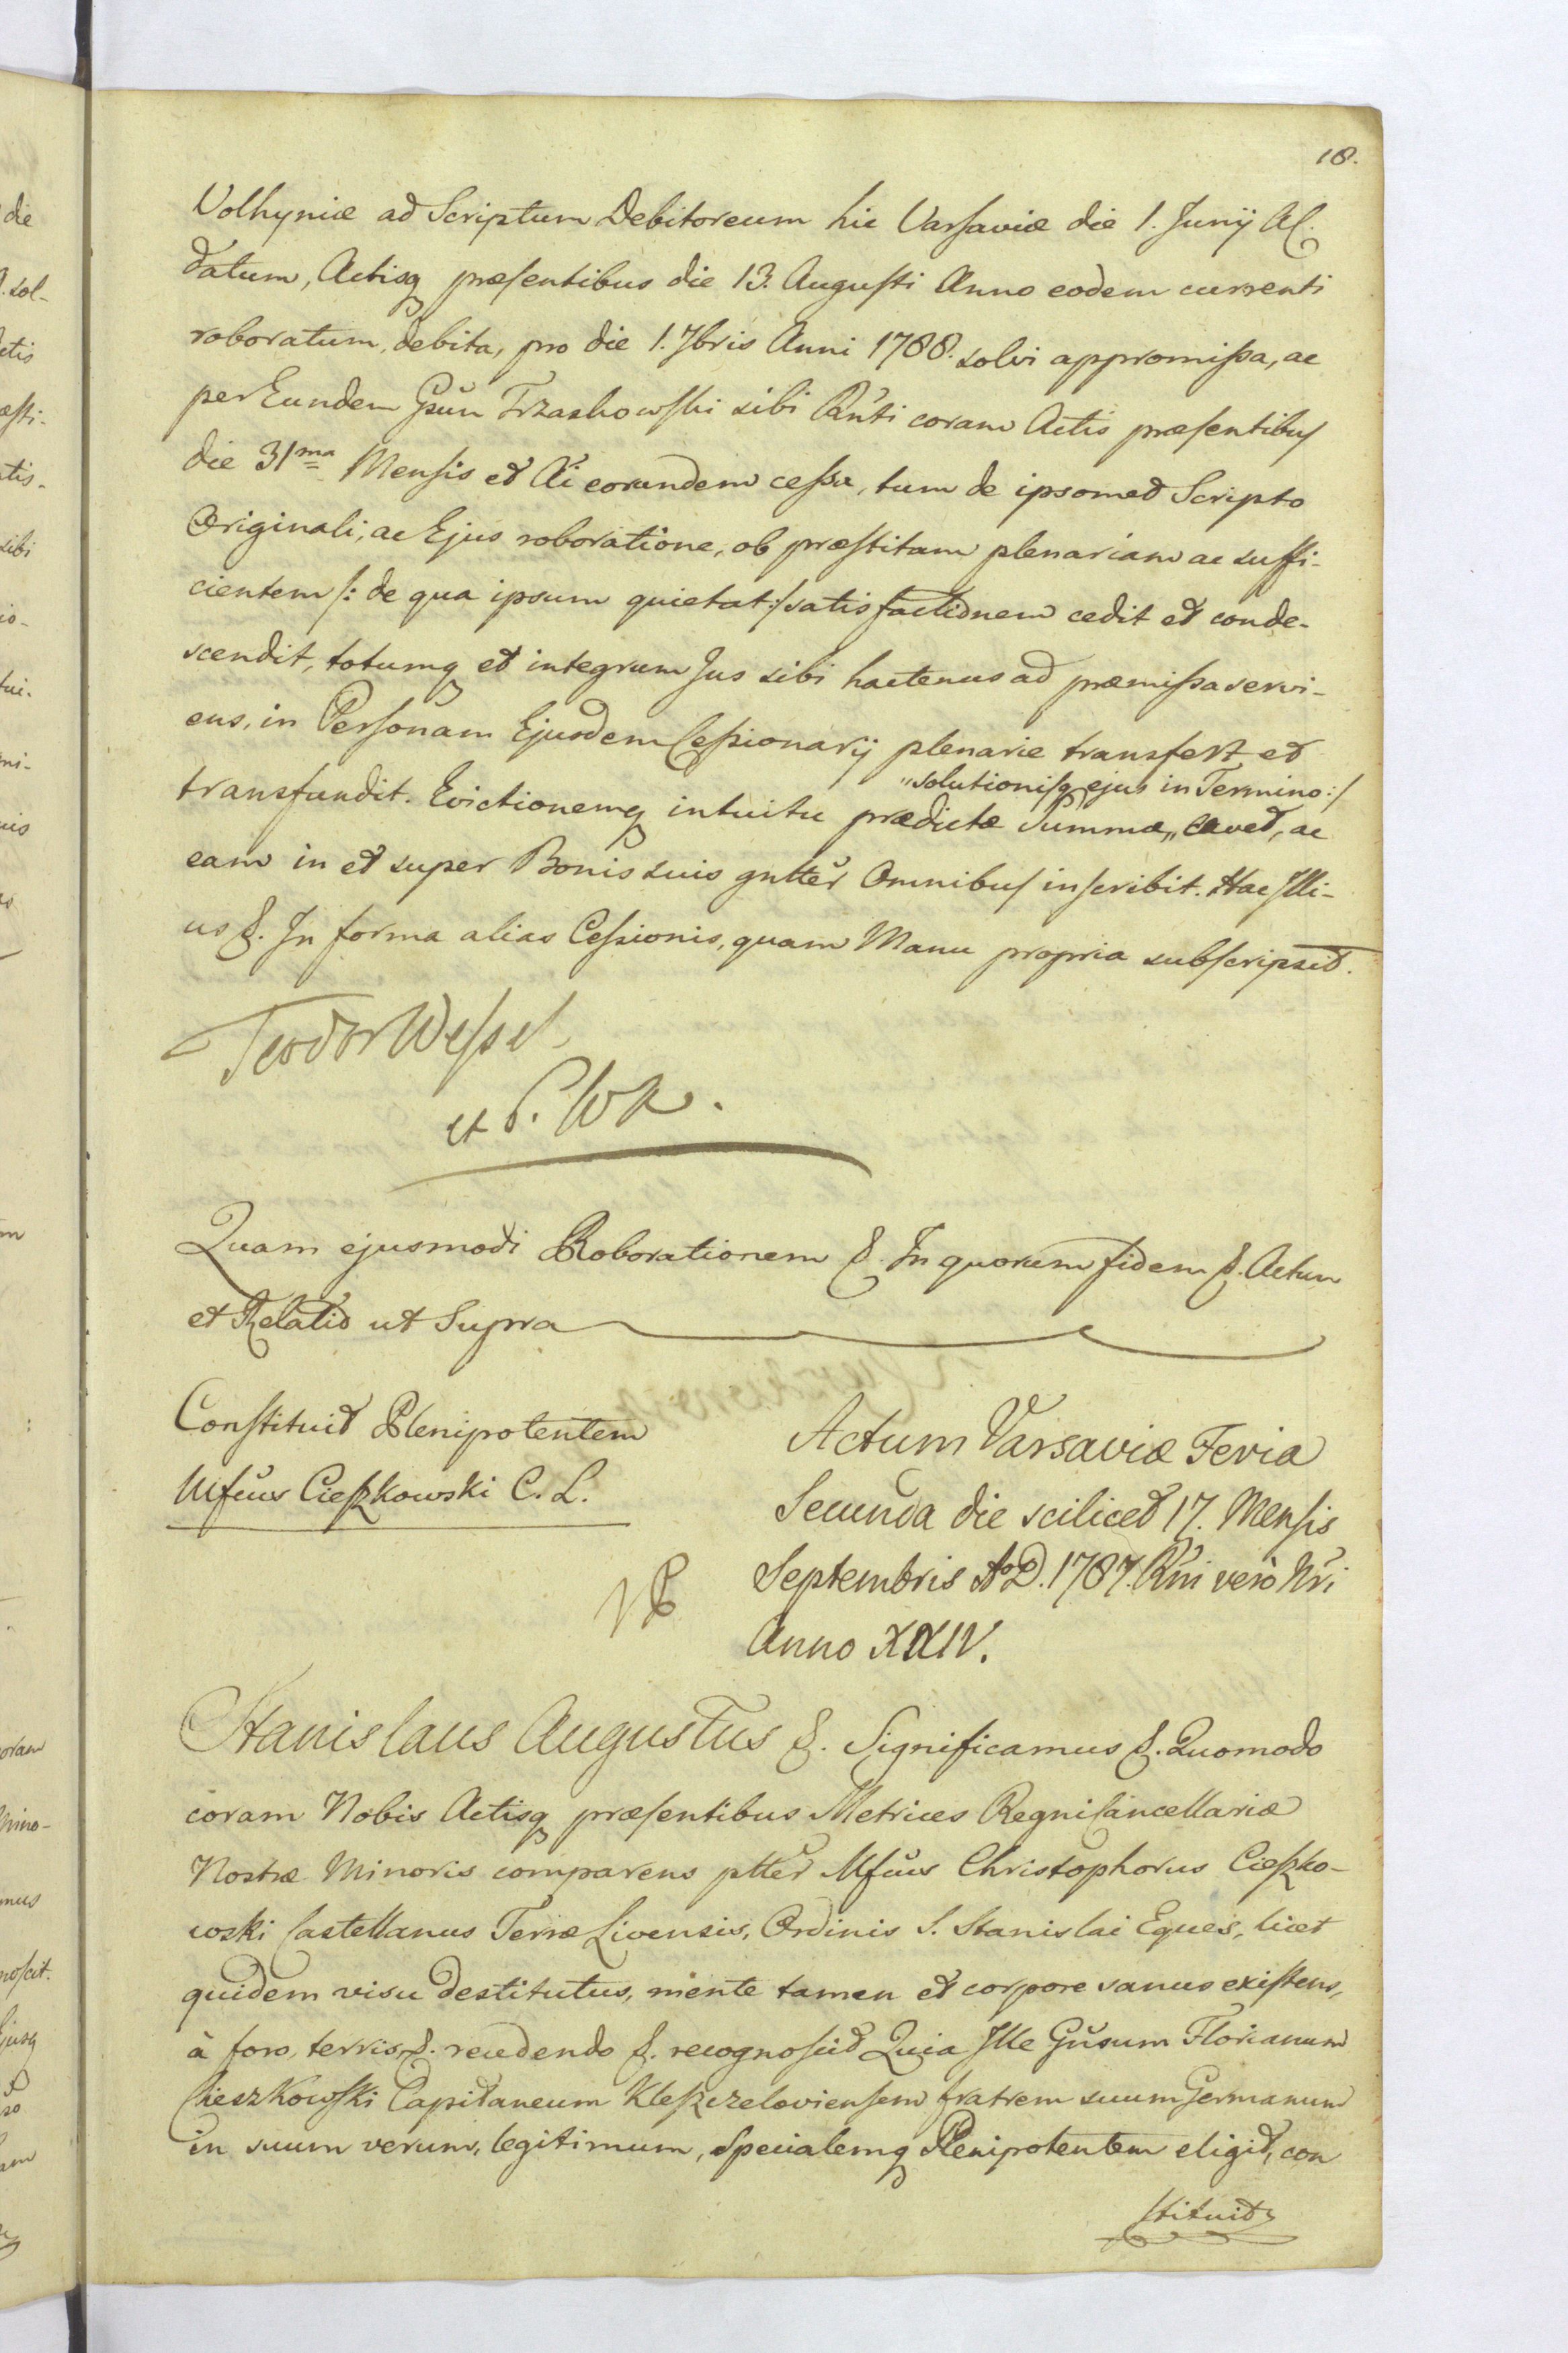 18.
Volhyniæ ad Scriptum Debitoreum hic Varsaviæ die 1. Junij
datum, Actisq præsentibus die 13. Augusti Anno eodem currenti
roboratum, debita, pro die 1. 7bris Anni 1788. solvi appromissa, ac
per Eundem Gsūm Trzaskowski sibi Rn̄ti coram Actis præsentibus
die 31ma Mensis et Ai eorundem cessa, tum de ipsomet Scripto
Originali, ac Ejus roboratione, ob præstitam plenariam ac suffi-
cientem /: de qua ipsum quietat :/ satisfactionem cedit et conde-
scendit, totumq et integrum Jus sibi hactenus ad præmissa servi-
ens, in Personam Ejusdem Cessionarij plenarie transfert et
"solutionisq ejus in Termino :/
transfundit. Evictionemq intuitu prædictæ Summæ,, cavet, ac
eam in et super Bonis suis gntter Omnibus inscribit. Hac Illi-
us &. In forma alias Cessionis, quam Manu propria subscripsit.
Teodor Wessel
Quam ejusmodi Roborationem &. In quorum fidem &. Actum
et Relatio ut Supra
Constituit Plenipotentem
Mfcus Cieszkowski C. L.
Actum Varsaviæ Feria
Secunda die scilicet 17. Mensis
Septembris Ao D. 1787. Rni verò Nri
Anno XXIV.
Stanislaus Augustus &. Significamus &. Quomodo
coram Nobis Actisq præsentibus Metrices Regni Cancellariæ
Nostræ Minoris comparens ptter Mfcus Christophorus Cieszko-
wski Castellanus Terræ Livensis, Ordinis S. Stanislai Eques, licet
quidem visu destitutus, mente tamen et corpore sanus existens,
à foro, terris &. recedendo &. recognoscit Quia Ille Gsūm Florianum
Cieszkowski Capitaneum Kleszczeloviensem fratrem suum Germanum
in suum verum, legitimum, specialemq Plenipotentem eligit, con
stituit